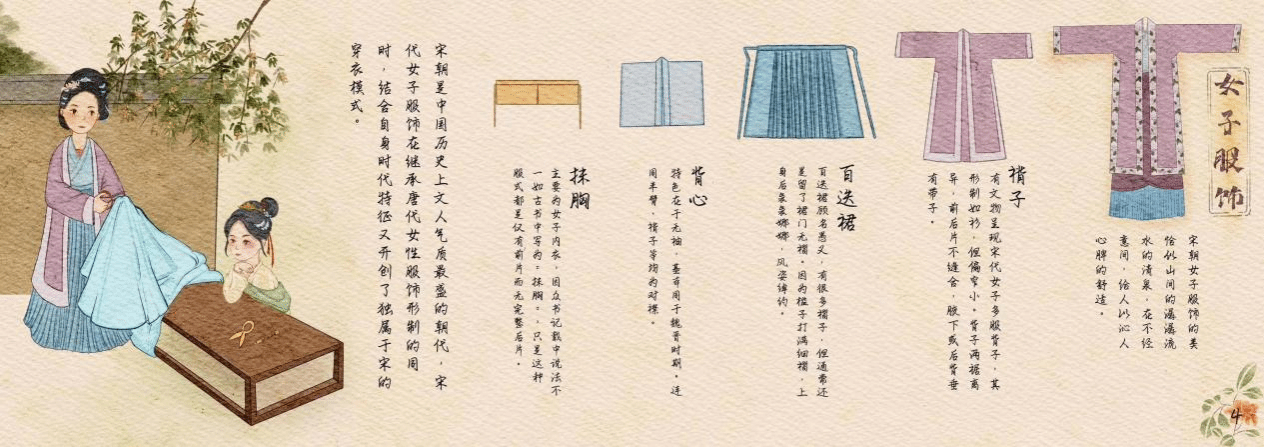 女子服饰
宋朝女子服饰的美
恰似山间的潺潺流
水的清泉，在不经
意间，给人以沁人
心脾的舒适。
褙子
有文物呈现宋代女子多服背子，其
形制如衫，但偏窄小。背子两裾离
异，前后片不缝合，腋下或后背垂
有带子。
百迭裙
百迭裙顾名思义，有很多褶子，但通常还
是留了裙门无褶。因为褶子打满细褶，上
身后袅袅娜娜，风姿绰约。
背心
特色在于无袖，甚有用于魏晋时期。连
同半臂、褙子等均为对襟。
抹胸
主要为女子内衣，因众书记载中说法不
一如古书中写为：抹胸：，只是这种
服式都是仅有前片而无完整后片。
宋朝是中国历史上文人气质最盛的朝代，宋
代女子服饰在继承唐代女性服饰形制的同
时，结合自身时代特征又开创了独属于宋的
穿衣模式。
4